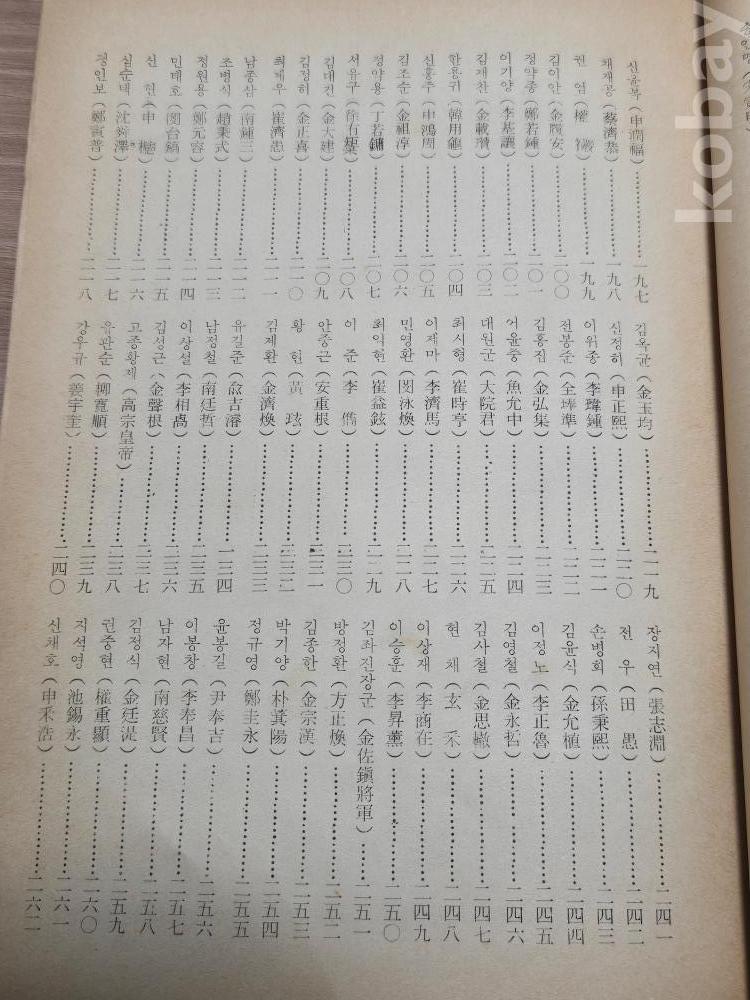 kobay
신윤복 (申潤福)……………一九七
채재공 (蔡濟恭)……………一九八
권 엄 (權 𧟓)……………一九九
김이안 (金履安)……………二〇〇
정약종 (鄭若鍾)……………二〇一
이기양 (李基讓)……………二〇二
김재찬 (金載瓚)……………二〇三
한용귀 (韓用龜)……………二〇四
신홍주 (申鴻周)……………二〇五
김조순 (金祖淳)……………二〇六
정약용 (丁若鏞)……………二〇七
서유구 (徐有榘)……………二〇八
김대건 (金大建)……………二〇九
김정히 (金正喜)……………二一〇
최제우 (崔濟愚)……………二一一
남종삼 (南鍾三)……………二一二
조병식 (趙秉式)……………二一三
정원용 (鄭元容)……………二一四
민태호 (閔台鎬)……………二一五
신 헌 (申 櫶)……………二一六
심순택 (沈舜澤)……………二一七
정인보 (鄭寅普)……………二一八
김옥균 (金玉均)……………二一九
신정히 (申正熙)……………二二〇
이위종 (李瑋鍾)……………二二一
전봉준 (全琫準)……………二二二
김홍집 (金弘集)……………二二三
어윤중 (魚允中)……………二二四
대원군 (大院君)……………二二五
최시형 (崔時亨)……………二二六
이제마 (李濟馬)……………二二七
민영환 (閔泳煥)……………二二八
최익현 (崔益鉉)……………二二九
이 준 (李 儁)……………二三〇
안중근 (安重根)……………二三一
황 현 (黃 玹)……………二三二
김제환 (金濟煥)……………二三三
유길준 (兪吉濬)……………一三四
남정철 (南廷哲)……………二三五
이상설 (李相卨)……………二三六
김성근 (金聲根)……………二三七
고종황제 (高宗皇帝)……………二三八
유관순 (柳寬順)……………二三九
강우규 (姜宇奎)……………二四〇
장지연 (張志淵)……………二四一
전 우 (田 愚)……………二四二
손병희 (孫秉熙)……………二四三
김윤식 (金允植)……………二四四
이정노 (李正魯)……………二四五
김영철 (金永哲)……………二四六
김사철 (金思轍)……………二四七
현 채 (玄 采)……………二四八
이상재 (李商在)……………二四九
이승훈 (李昇薰)……………二五〇
김좌진장군 (金佐鎭將軍)……………二五一
방정환 (方正煥)……………二五二
김종한 (金宗漢)……………二五三
박기양 (朴箕陽)……………二五四
정규영 (鄭圭永)……………二五五
윤봉길 (尹奉吉)……………二五六
이봉창 (李奉昌)……………二五七
남자현 (南慈賢)……………二五八
김정식 (金廷湜)……………二五九
권중현 (權重顯)……………二六〇
지석영 (池錫永)……………二六一
신채호 (申采浩)……………二六二